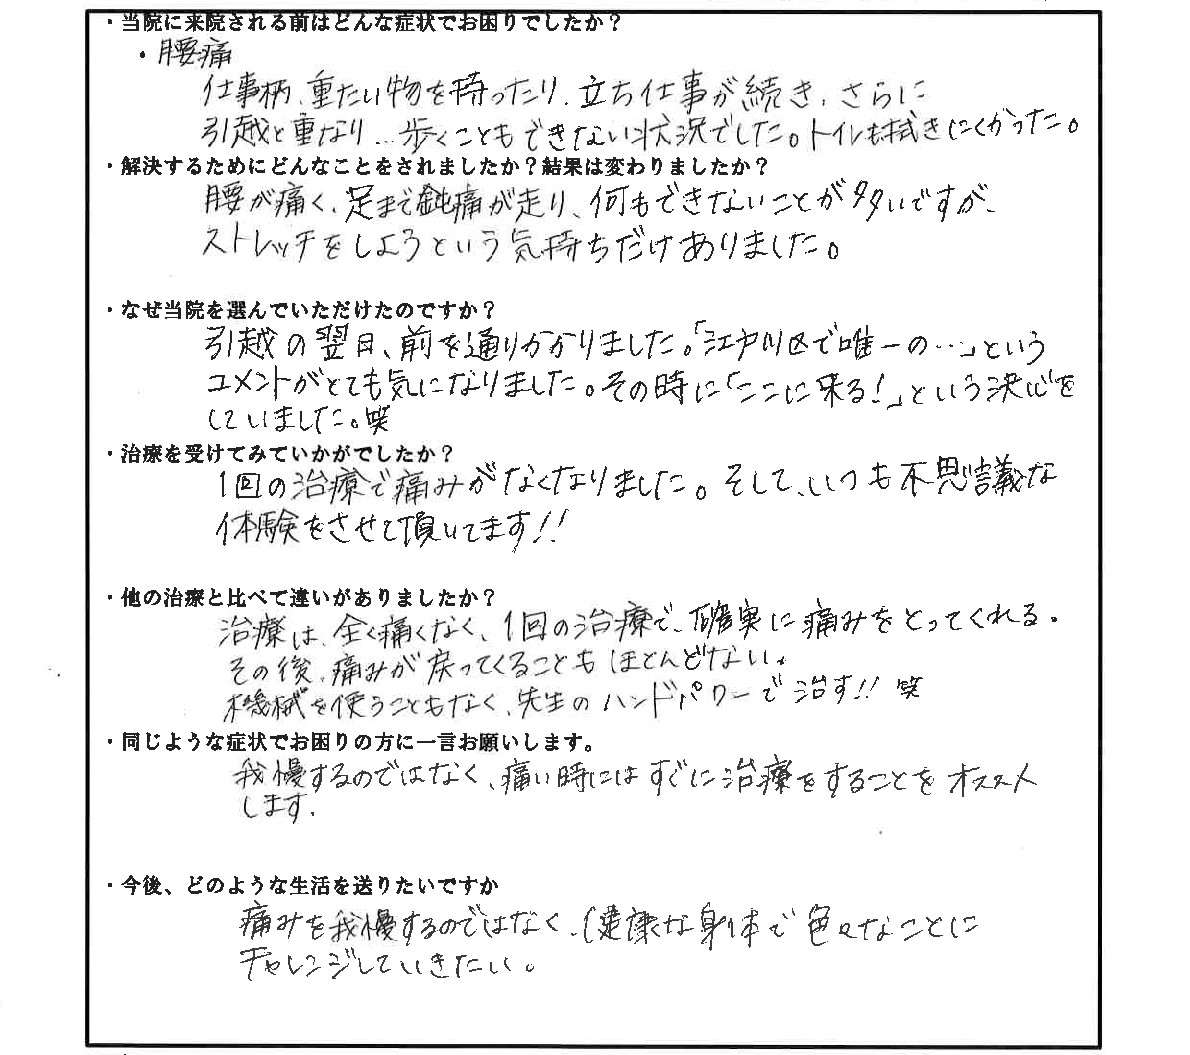 ・当院に来院される前はどんな症状でお困りでしたか？
・腰痛
仕事柄、重たい物を持ったり、立ち仕事が続き、さらに
引越と重なり…歩くこともできない状況でした。トイレも拭きにくかった。
・解決するためにどんなことをされましたか？結果は変わりましたか？
腰が痛く、足まで鈍痛が走り、何もできないことが多いですが、
ストレッチをしようという気持ちだけありました。
・なぜ当院を選んでいただけたのですか？
引越の翌日、前を通りかかりました。「江戸川区で唯一の…」という
コメントがとても気になりました。その時に「ここに来る！」という決心を
していました。笑
・治療を受けてみていかがでしたか？
1回の治療で痛みがなくなりました。そして、いつも不思議な
体験をさせて頂いてます!!
・他の治療と比べて違いがありましたか？
治療は、全く痛くなく、1回の治療で、確実に痛みをとってくれる。
その後、痛みが戻ってくることもほとんどない。
機械を使うこともなく、先生のハンドパワーで治す!! 笑
・同じような症状でお困りの方に一言お願いします。
我慢するのではなく、痛い時にはすぐに治療をすることをオススメ
します。
・今後、どのような生活を送りたいですか
痛みを我慢するのではなく、健康な身体で色々なことに
チャレンジしていきたい。